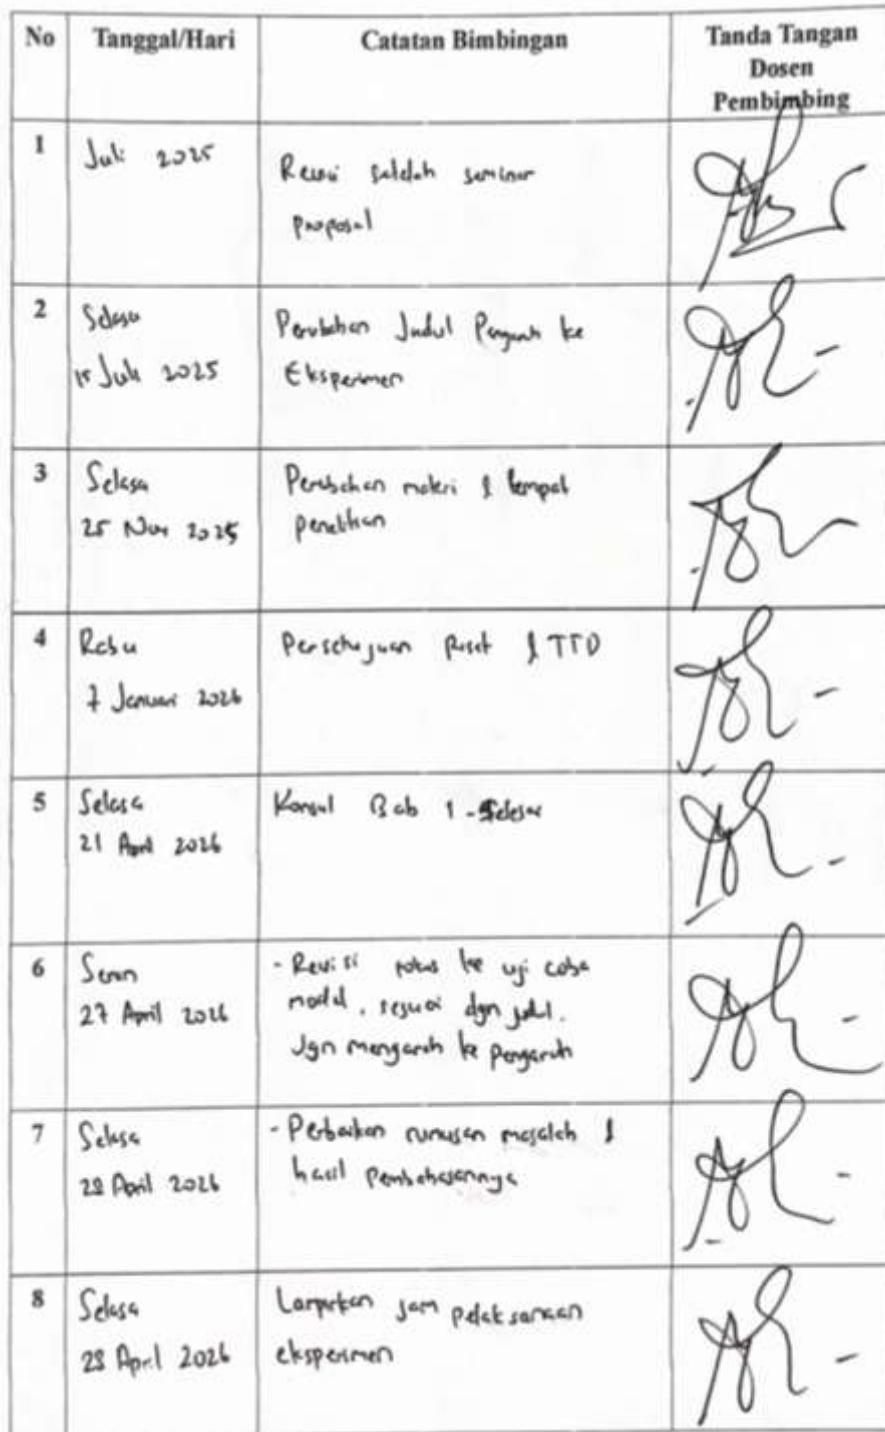 No Tanggal/Hari Catatan Bimbingan Tanda Tangan
Dosen
Pembimbing
1 Juli 2025
Revisi setelah seminar
proposal
2 Selasa
15 Juli 2025
Perubahan Judul Pengaruh ke
Eksperimen
3 Selasa
25 Nov 2025
Perubahan materi & tempat
penelitian
4 Rabu
7 Januari 2026
Persetujuan Riset & TTD
5 Selasa
21 April 2026
Konsul Bab 1 - Selesai
6 Senin
27 April 2026
- Revisi fokus ke uji coba
model, sesuai dgn judul.
Jgn mengarah ke pengaruh
7 Selasa
28 April 2026
- Perbaikan rumusan masalah &
hasil pembahasannya
8 Selasa
28 April 2026
Lampirkan jam pelaksanaan
eksperimen